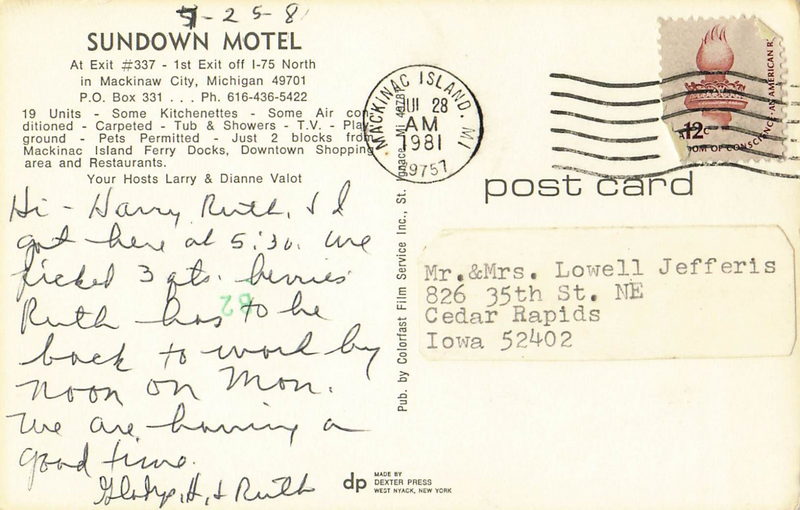 7-25-81
SUNDOWN MOTEL
At Exit #337 - 1st Exit off I-75 North
in Mackinaw City, Michigan 49701
P.O. Box 331 . . . Ph. 616-436-5422
19 Units - Some Kitchenettes - Some Air con-
ditioned - Carpeted - Tub & Showers - T.V. - Play-
ground - Pets Permitted - Just 2 blocks from
Mackinac Island Ferry Docks, Downtown Shopping
area and Restaurants.
Your Hosts Larry & Dianne Valot
Hi - Harry, Ruth, & I
got here at 5:30. We
picked 3 qts. berries
Ruth has to be
back to work by
noon on Mon.
We are having a
good time.
Gladys, H, & Ruth
82
Pub. by Colorfast Film Service Inc., St. Ignace, MI 49781
dp
MADE BY
DEXTER PRESS
WEST NYACK, NEW YORK
MACKINAC ISLAND, MI
JUL 28
AM
1981
49757
12c
AN AMERICAN
OM OF CONSCIENCE
post card
Mr.&Mrs. Lowell Jefferis
826 35th St. NE
Cedar Rapids
Iowa 52402